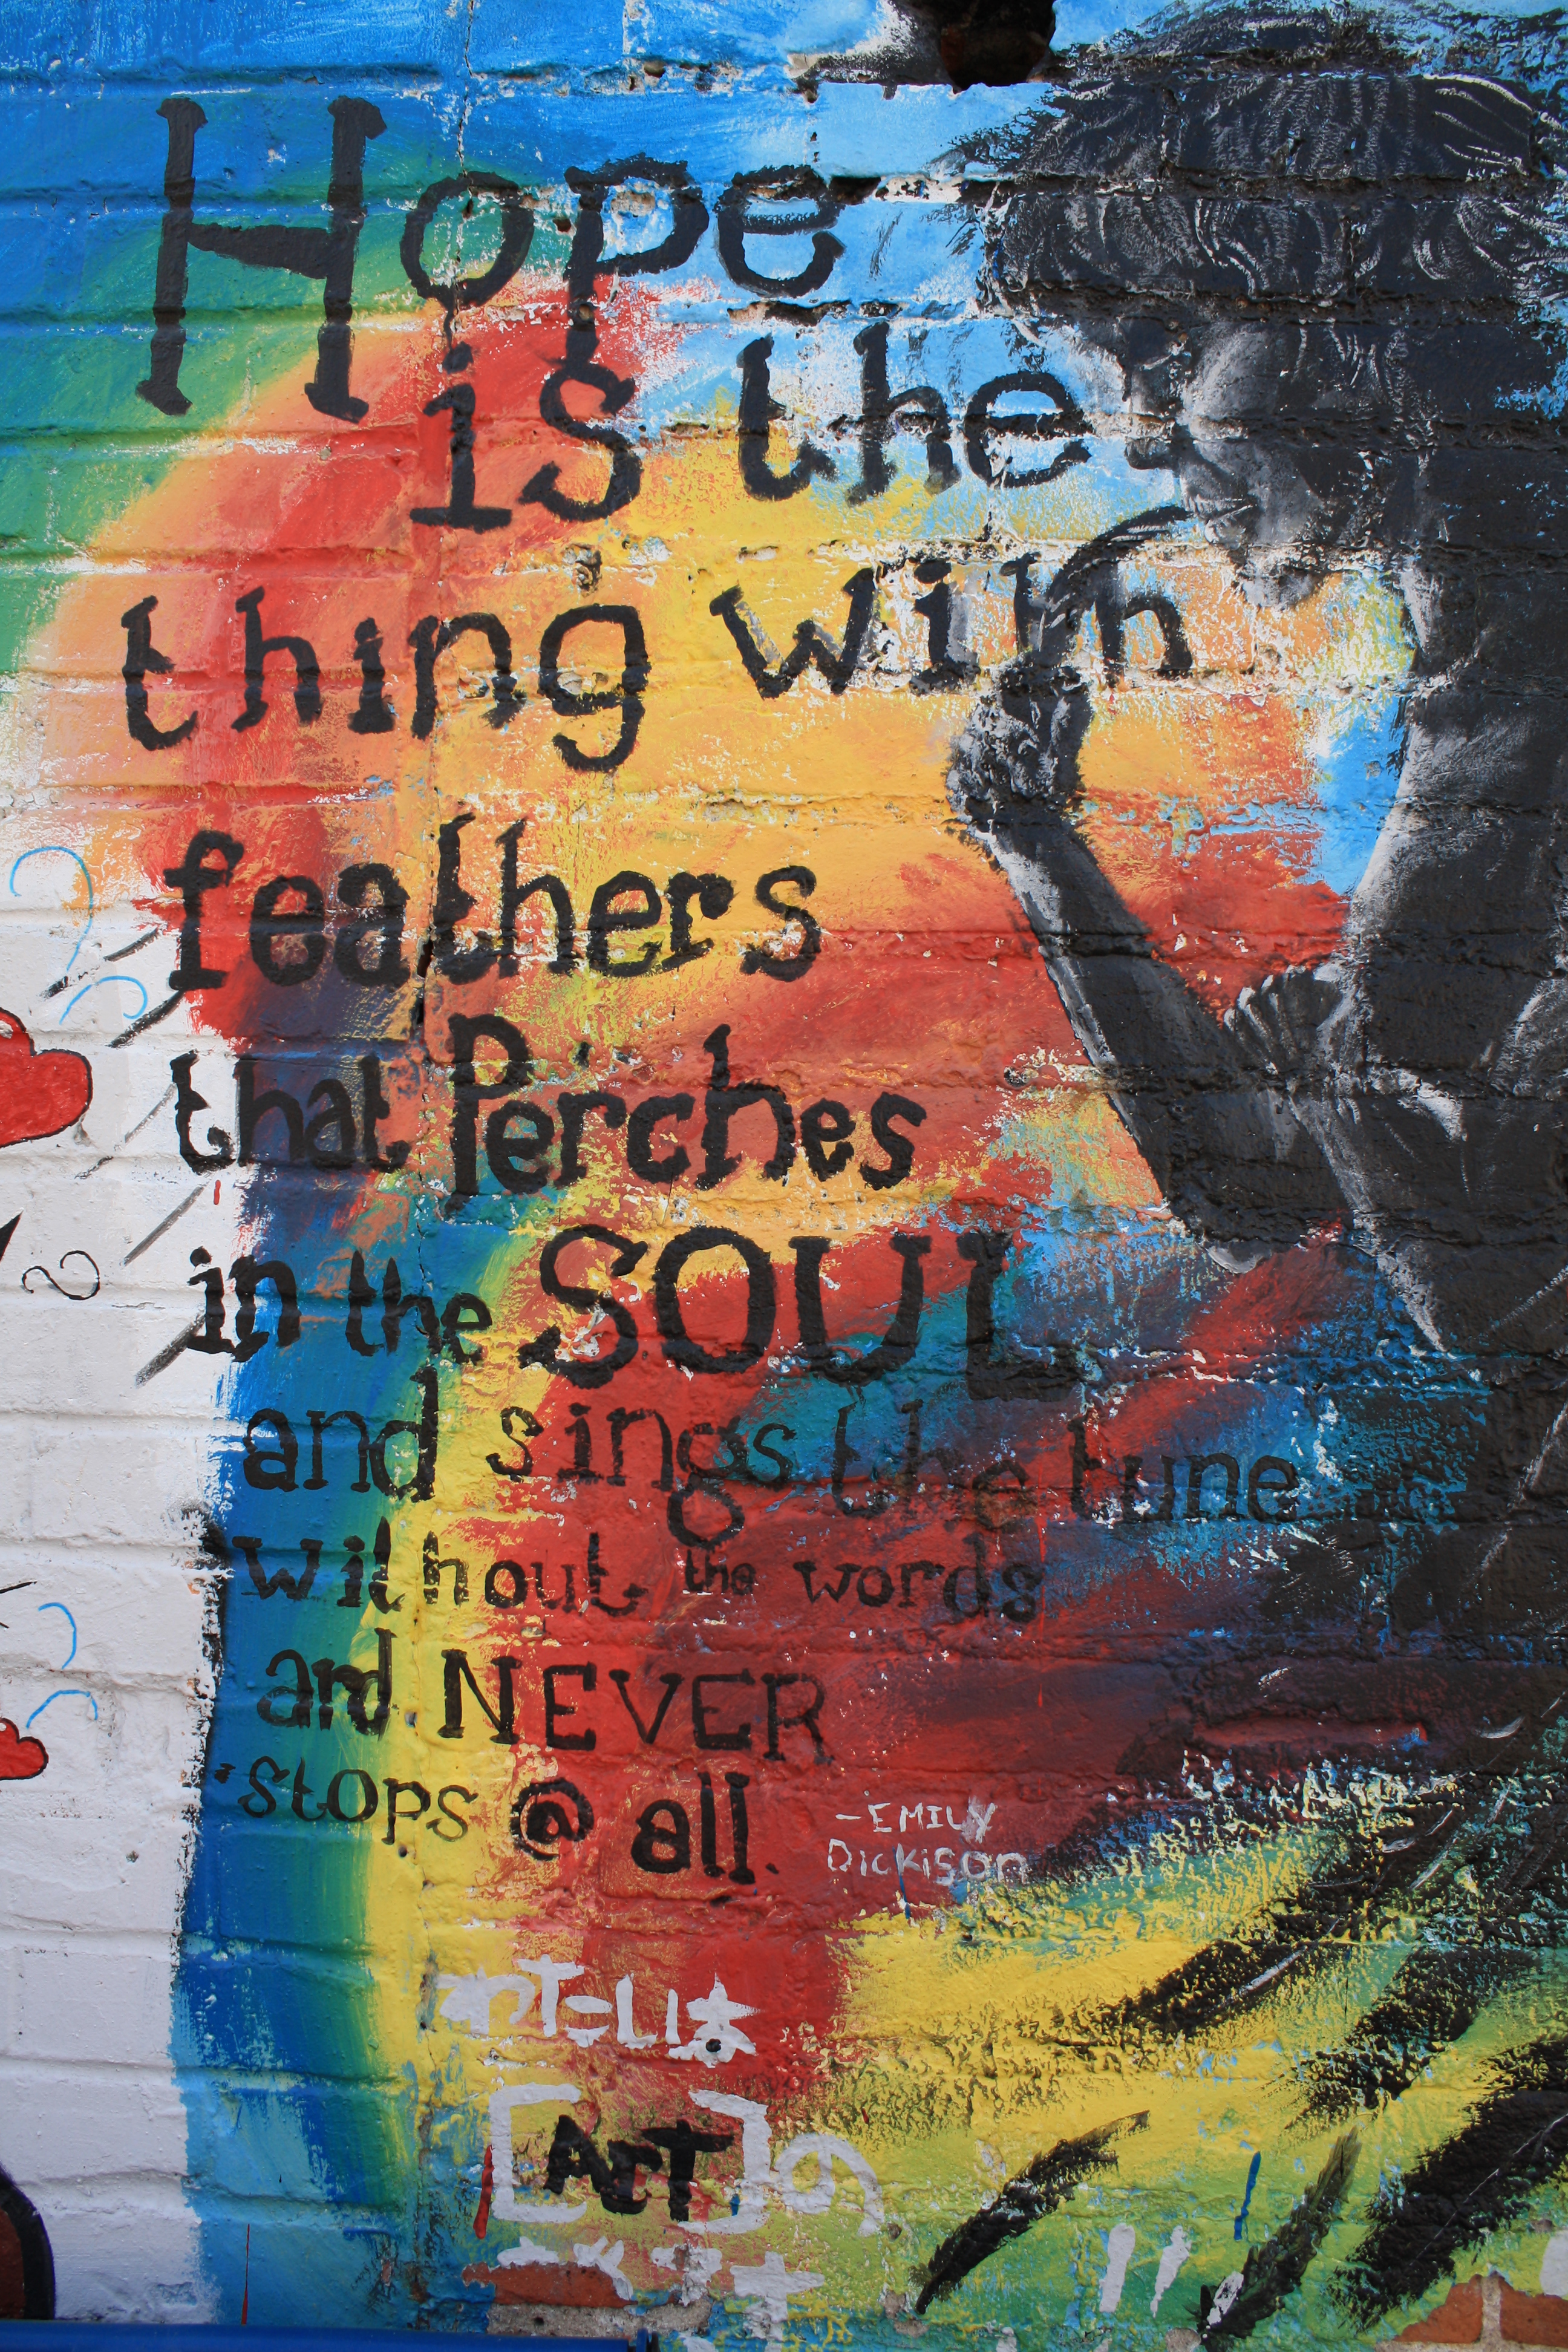 Hope
is the
thing with
feathers
that Perches
in the SOUL
and sings the tune
without the words
and NEVER
stops @ all.
-EMILY
Dickison
わたしは
[ART]の